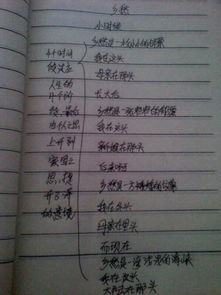 乡愁
小时候
乡愁是一枚小小的邮票
我在这头
母亲在那头
长大后
乡愁是一张窄窄的船票
我在这头
新娘在那头
后来啊
乡愁是一方矮矮的坟墓
我在外头
母亲在里头
而现在
乡愁是一湾浅浅的海峡
我在这头
大陆在那头
4个时间
人生的
4个阶
上升到
家国之
思,提
的意境